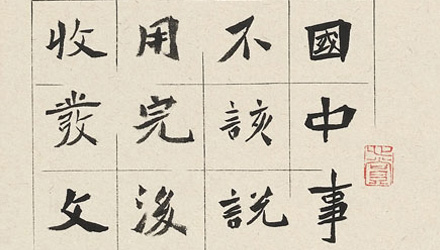 國中事
不該說
用完後
收發文